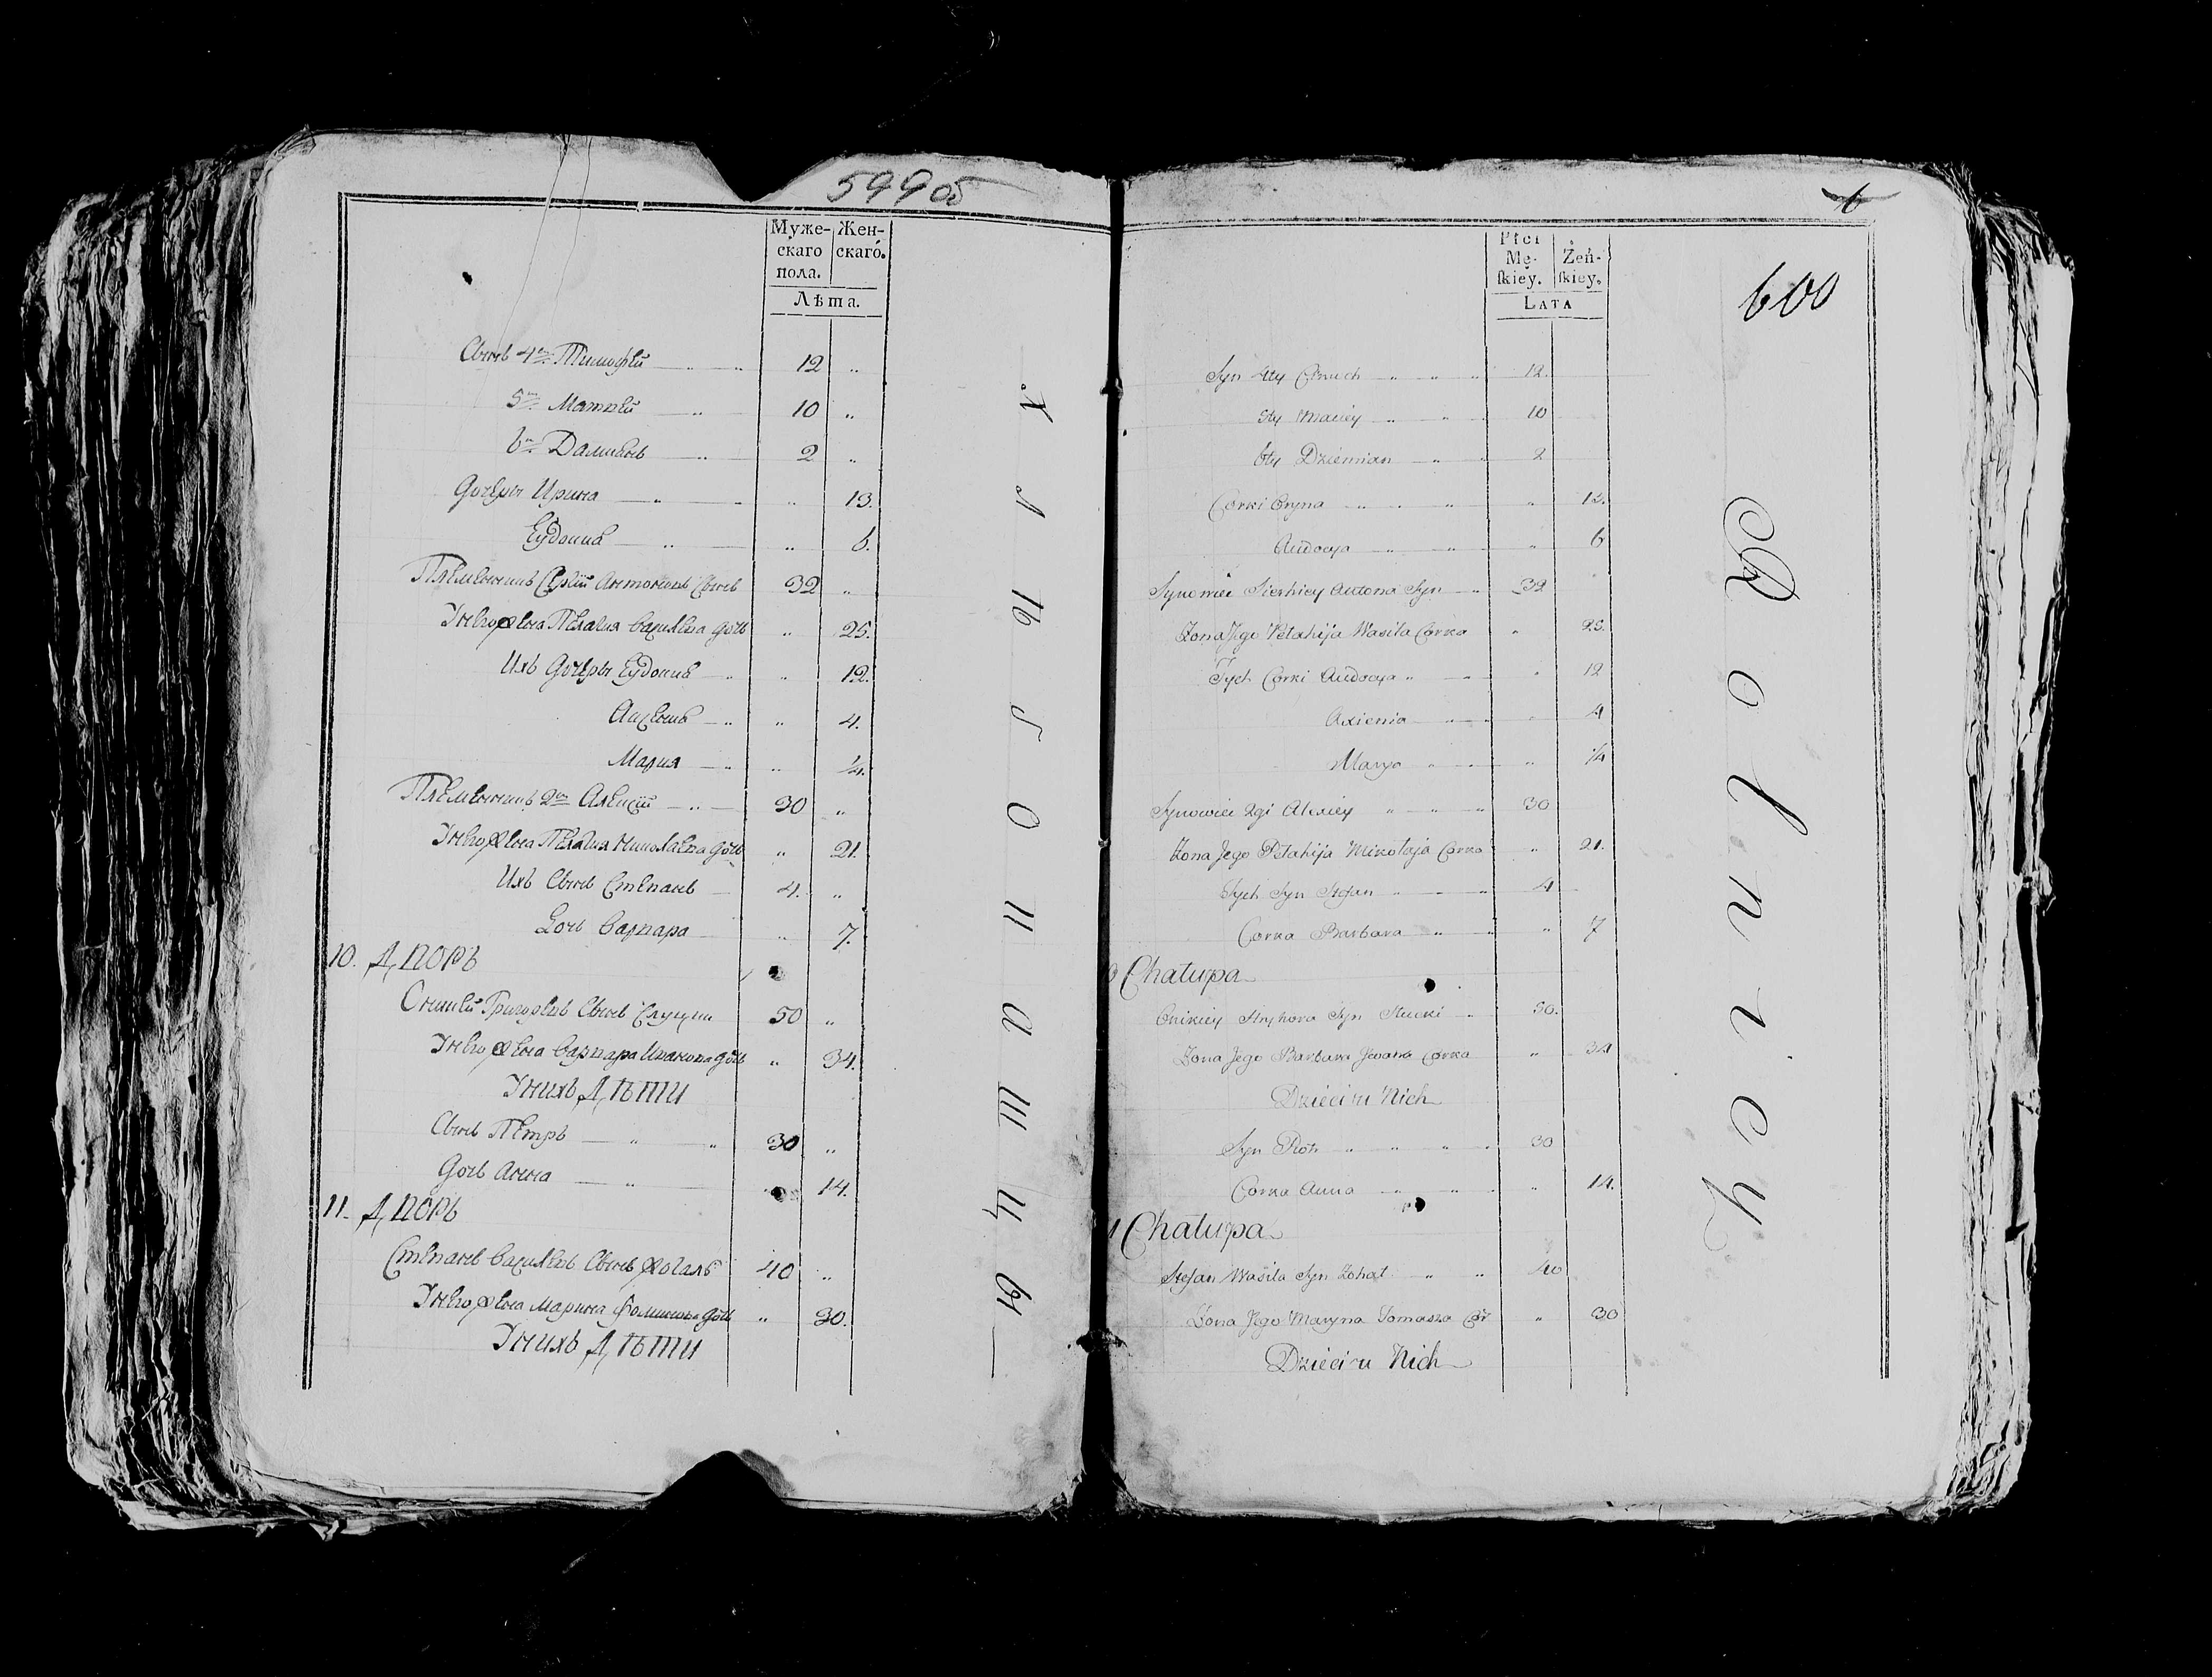 599об
Муже-
скаго
пола.
Жен-
скаго.
Лѣта.
Сынъ 4й Тимофей 12 „
5й Матвей 10 „
6й Дамиянъ 2 „
Дочери Ирина „ 13.
Еудокия „ 6.
Племенникъ Сергiй Антоновъ Сынъ 32 „
У него жена Пелагия Василева дочь „ 25.
Ихъ Дочери Еудокия „ 12.
Аксения „ 4.
Мария „ ¼.
Племенникъ 2й Алексiй 30 „
У него жена Пелагия Николаева дочь „ 21.
Ихъ Сынъ Степанъ 4. „
Дочь Варвара „ 7.
10. Дворъ
Оникей Григорiевъ Сынъ Слуцки 50 „
У него жена Варвара Иванова дочь „ 34.
У нихъ Дѣти
Сынъ Петръ 30 „
Дочь Анна 14.
11. Дворъ
Степанъ Василевъ Сынъ Жогалъ 40 „
У него жена Марина Фомикова дочь „ 30.
У нихъ Дѣти
6
600
Płci
Mę-
skiey.
Żeń-
skiey.
LATA
Syn 4ty 12.
5ty Maciey 10
6ty Dziemian 2
Corki Oryna „ 13.
Audocya „ 6
Synowiec Sierhiey Antona Syn 32
Zona Jego Pelahija Wasila Corka „ 25.
Tych Corki Audocya „ 12
Axienia „ 4
Marya „ ¼
Synowiec 2gi Alexiey 30
Zona Jego Pelahija Mikołaja Corka „ 21.
Tych Syn Stefan 4
Corka Barbara „ 7
Chałupa
Onikiey Hryhora Syn Słucki 50.
Zona Jego Barbara Jwana Corka „ 34
Dzieci u Nich
Syn Piotr 30
Corka Anna „ 14.
Chałupa
Stefan Wasila Syn Zohal 40
Zona Jego Maryna Tomasza Cor „ 30
Dzieci u Nich
Rolnicy